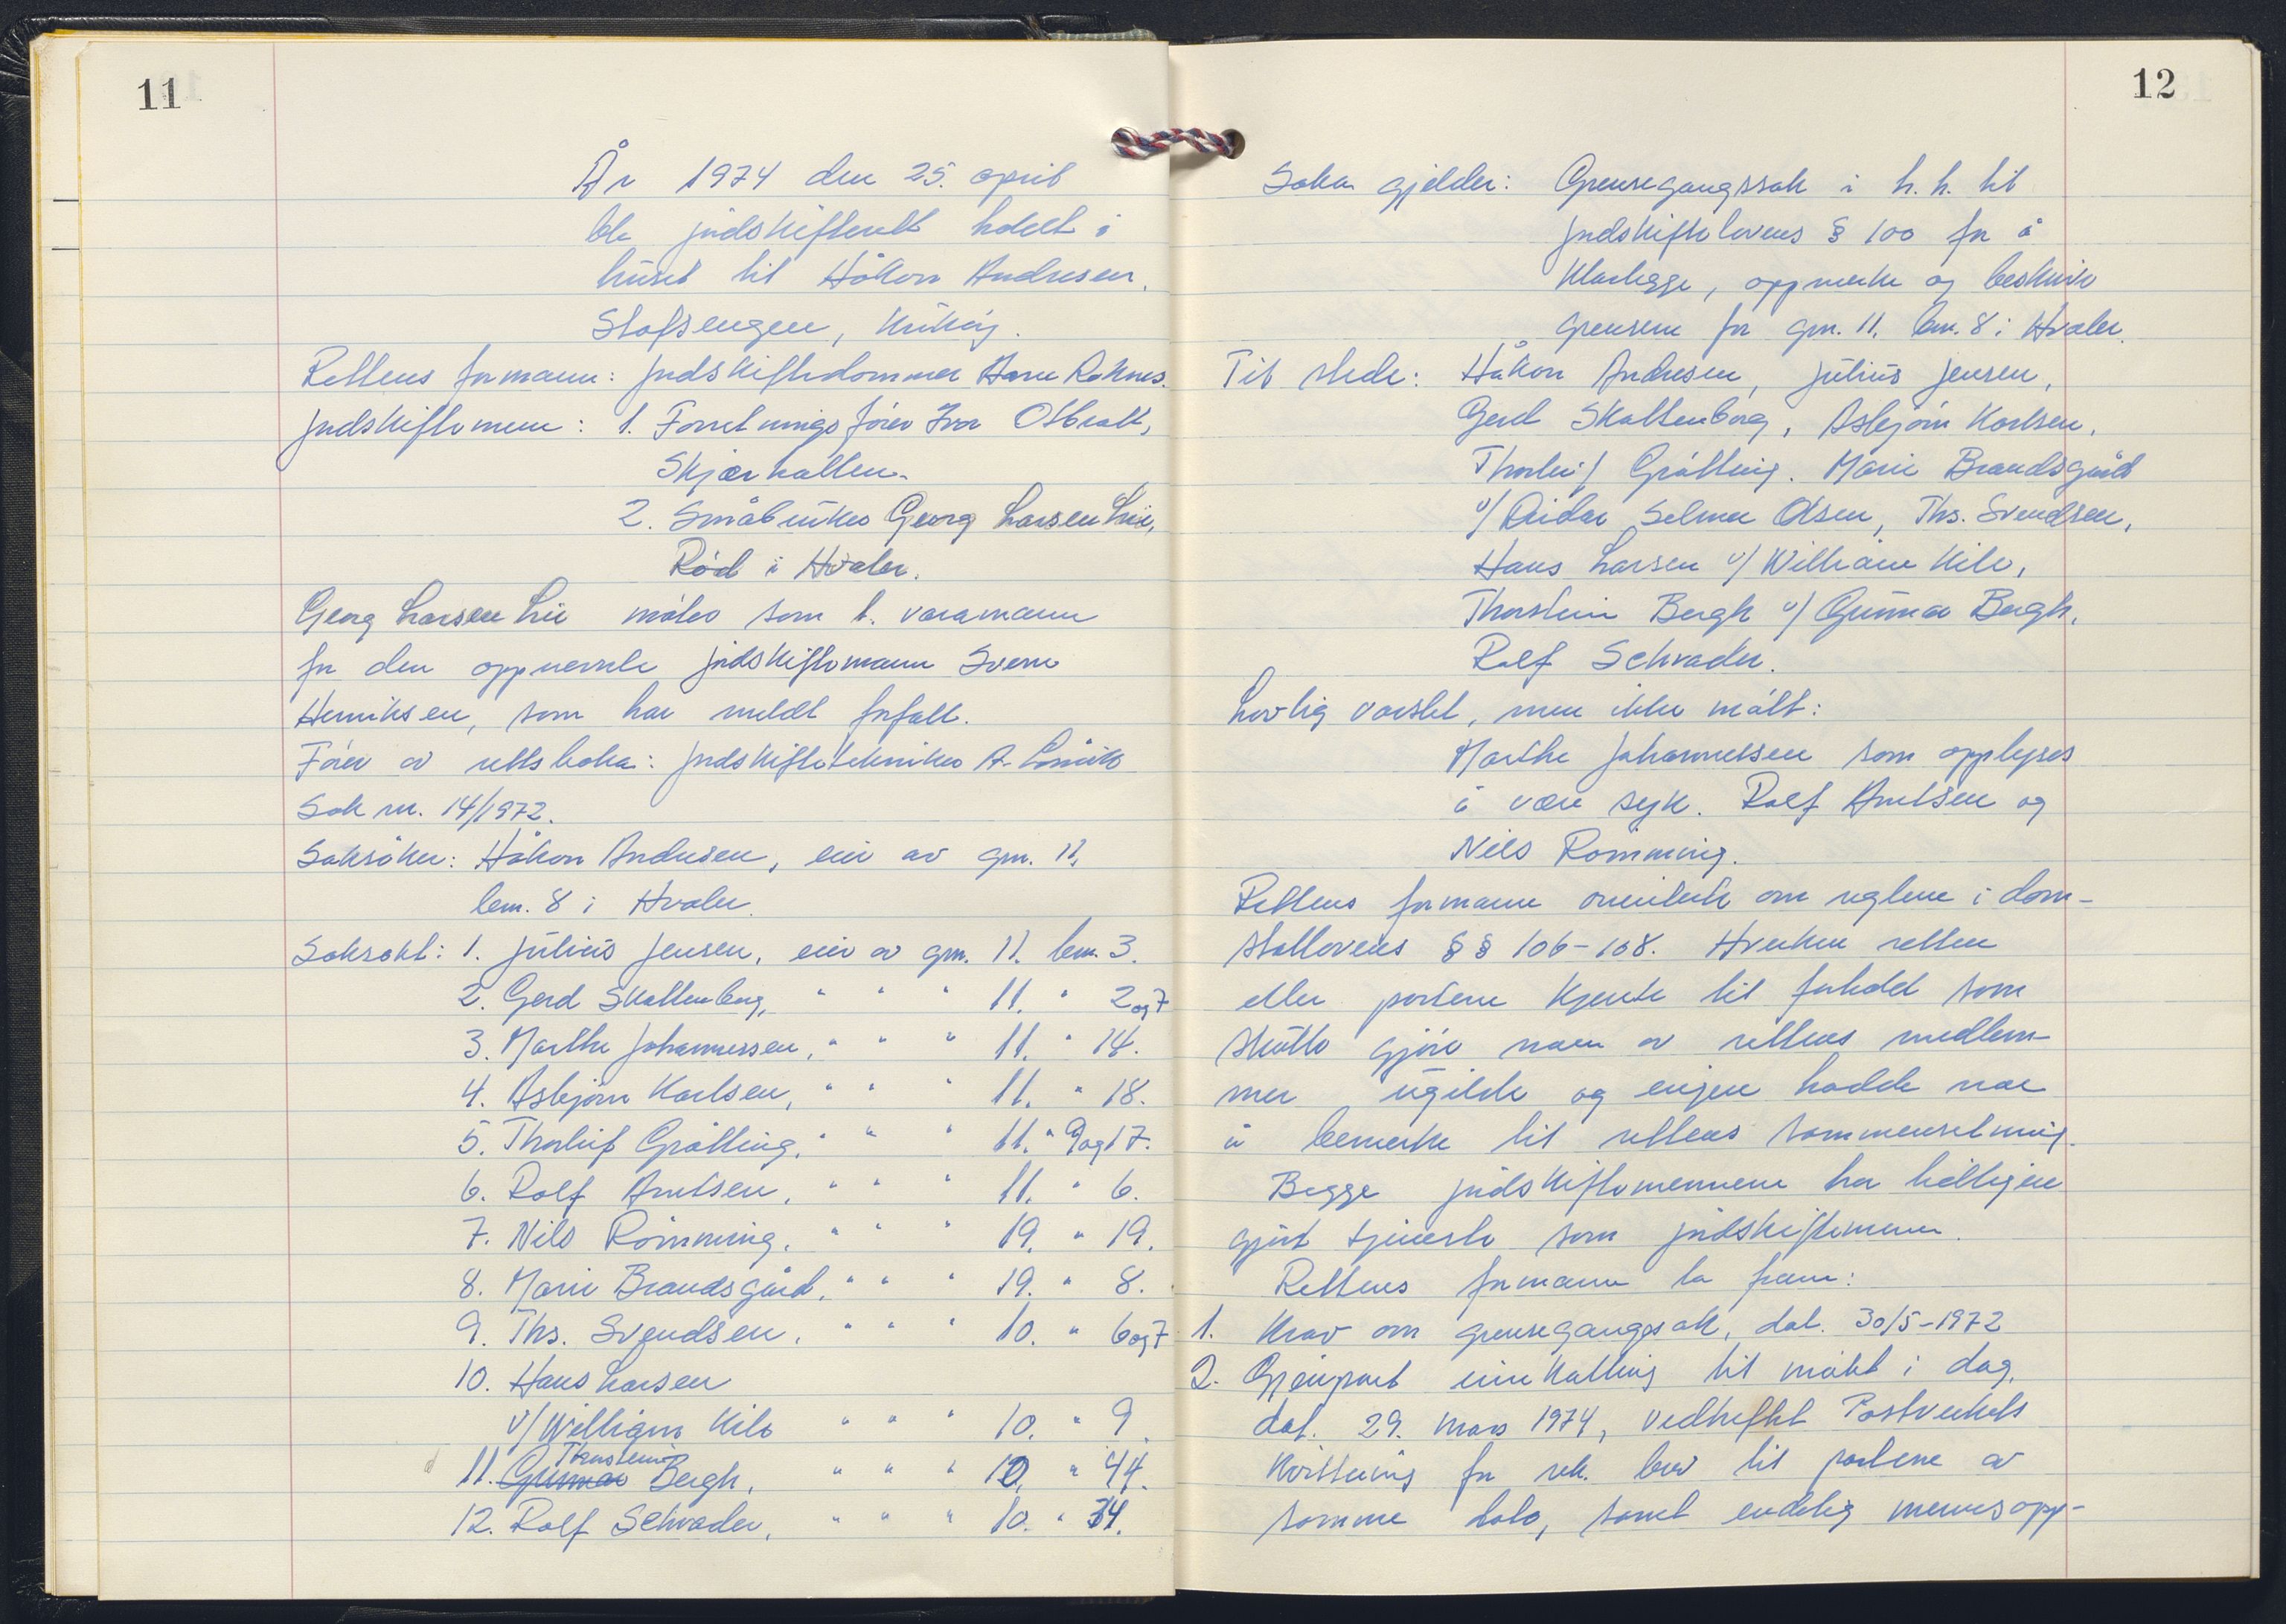 11
År 1974 den 25. april
ble jordskifterett holdt i
huset til Håkon Andresen,
Stafsengen, Kirkøy.
Rettens formann: Jordskiftedommer Arne Roknes.
Jordskiftemenn: 1. Forretningsfører Ivar Otbratt,
Skjærhallen.
2. Småbruker Georg Larsen Lie,
Rød i Hvaler.
Georg Larsen Lie møter som 1. varamann
for den oppnevnte jordskiftemann Svenn
Henriksen, som har meldt forfall.
Fører av rettsboka: Jordskiftetekniker A.
Sak nr. 14/1972.
Saksøker: Håkon Andresen, eier av gnr. 11,
bnr. 8 i Hvaler.
Saksøkt: 1. Julius Jensen, eier av gnr. 11. bnr. 3.
2. Gerd Skattenborg, " " " 11. " 2 og 7
3. Marthe Johannessen, " " " 11. " 14.
4. Asbjørn Karlsen, " " " 11. " 18.
5. Thorleif Gråtting, " " " 11. " 9 og 17.
6. Rolf Arntsen, " " " 11. " 6.
7. Nils Rømming, " " " 19. " 19.
8. Marie Brandsgård, " " " 19. " 8.
9. Ths. Svendsen, " " " 10. " 6 og 7
10. Hans Larsen
v/William Kile " " " 10. " 9.
Thorstein
11. Gunnar Bergh, " " " 10. " 44.
12. Rolf Schrader, " " " 10. " 34.
12
Saken gjelder: Grensegangssak i h. h. til
jordskiftelovens § 100 for å
klarlegge, oppmerke og beskrive
grensene for gnr. 11. bnr. 8 i Hvaler.
Til stede: Håkon Andresen, Julius Jensen,
Gerd Skattenborg, Asbjørn Karlsen,
Thorleif Gråtting. Marie Brandsgård
v/ Reidar Selmer Olsen, Ths. Svendsen,
Hans Larsen v/ William Kile,
Thorstein Bergh v/ Gunnar Bergh,
Rolf Schrader.
Lovlig varslet, men ikke møtt:
Marthe Johannessen som opplyses
å være syk. Rolf Arntsen og
Nils Rømming.
Rettens formann orienterte om reglene i dom-
stollovens §§ 106-108. Hverken retten
eller partene kjente til forhold som
skulle gjøre noen av rettens medlem-
mer ugilde og ingen hadde noe
å bemerke til rettens sammensetning.
Begge jordskiftemennene har tidligere
gjort tjeneste som jordskiftemenn.
Rettens formann la frem:
1. Krav om grensegangssak, dat. 30/5-1972
2. Gjenpart innkalling til møte i dag,
dat. 29. mars 1974, vedheftet Postverkets
kvittering for rek. brev til partene av
samme dato, samt endelig manns opp-